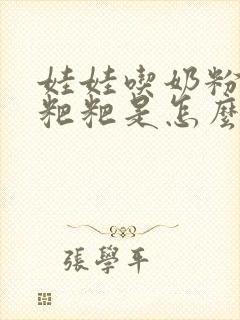 娃娃喫奶粉
粑粑是怎麼
張學平